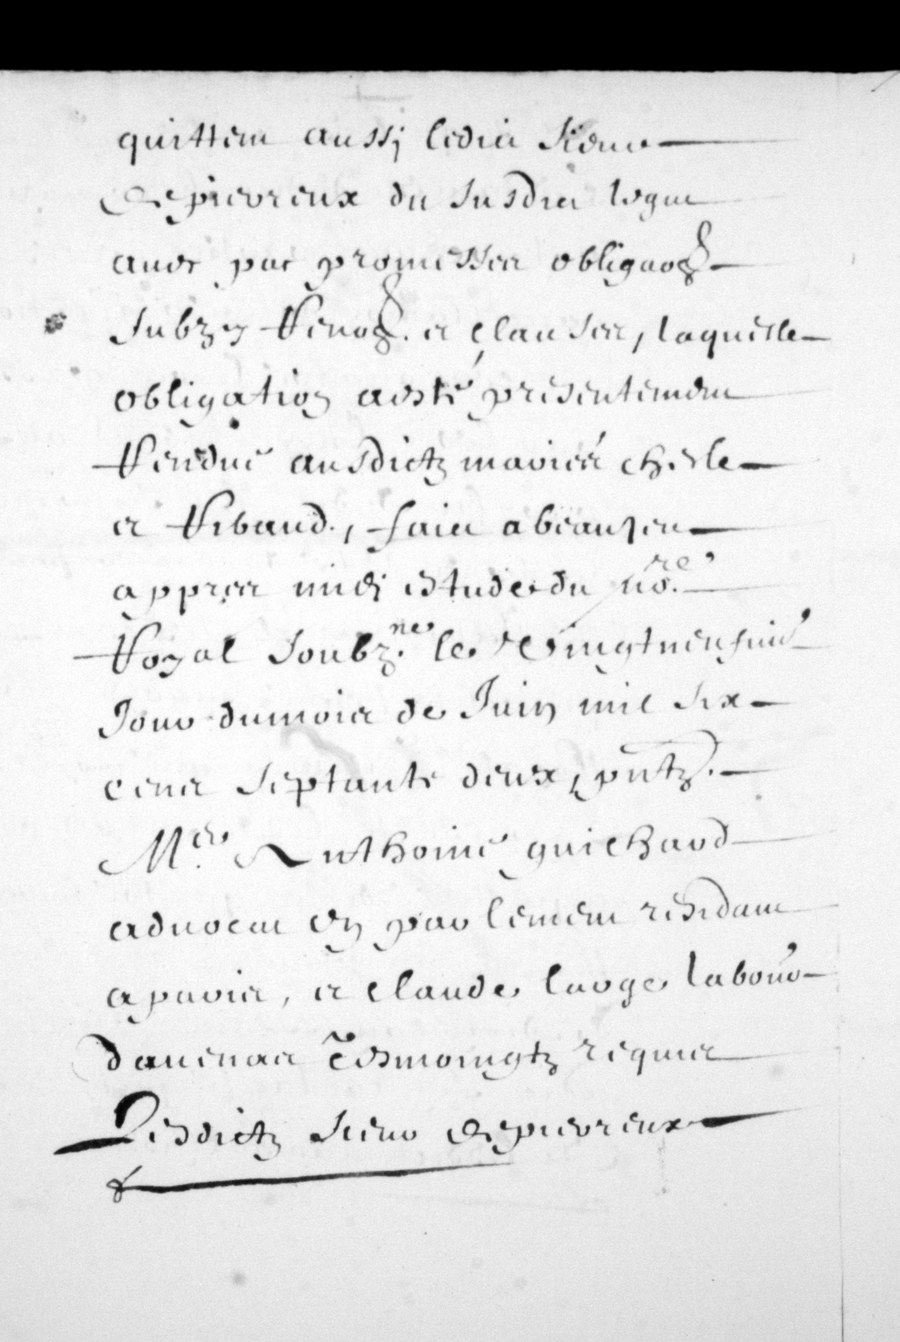 quittent aussj ledict Sieur
Depierreux du susdict legat
avec par promesses obligaōns
Subzons Renōns et clauses, laquelle
obligation a esté presentement
Rendue ausdictz mariés cherle
et Ribaud, faict a beaujeu
appres midj estude du nore.
Royal soubzne. le Vingtneufuie
Jour du mois de Juin mil six
cens septante deux, pntz.
Mere. Anthoine guichard
advocat en parlement residant
a paris, et Claude large labour
davenas tesmoingtz requis
Lesdictz Sieur Depierreux